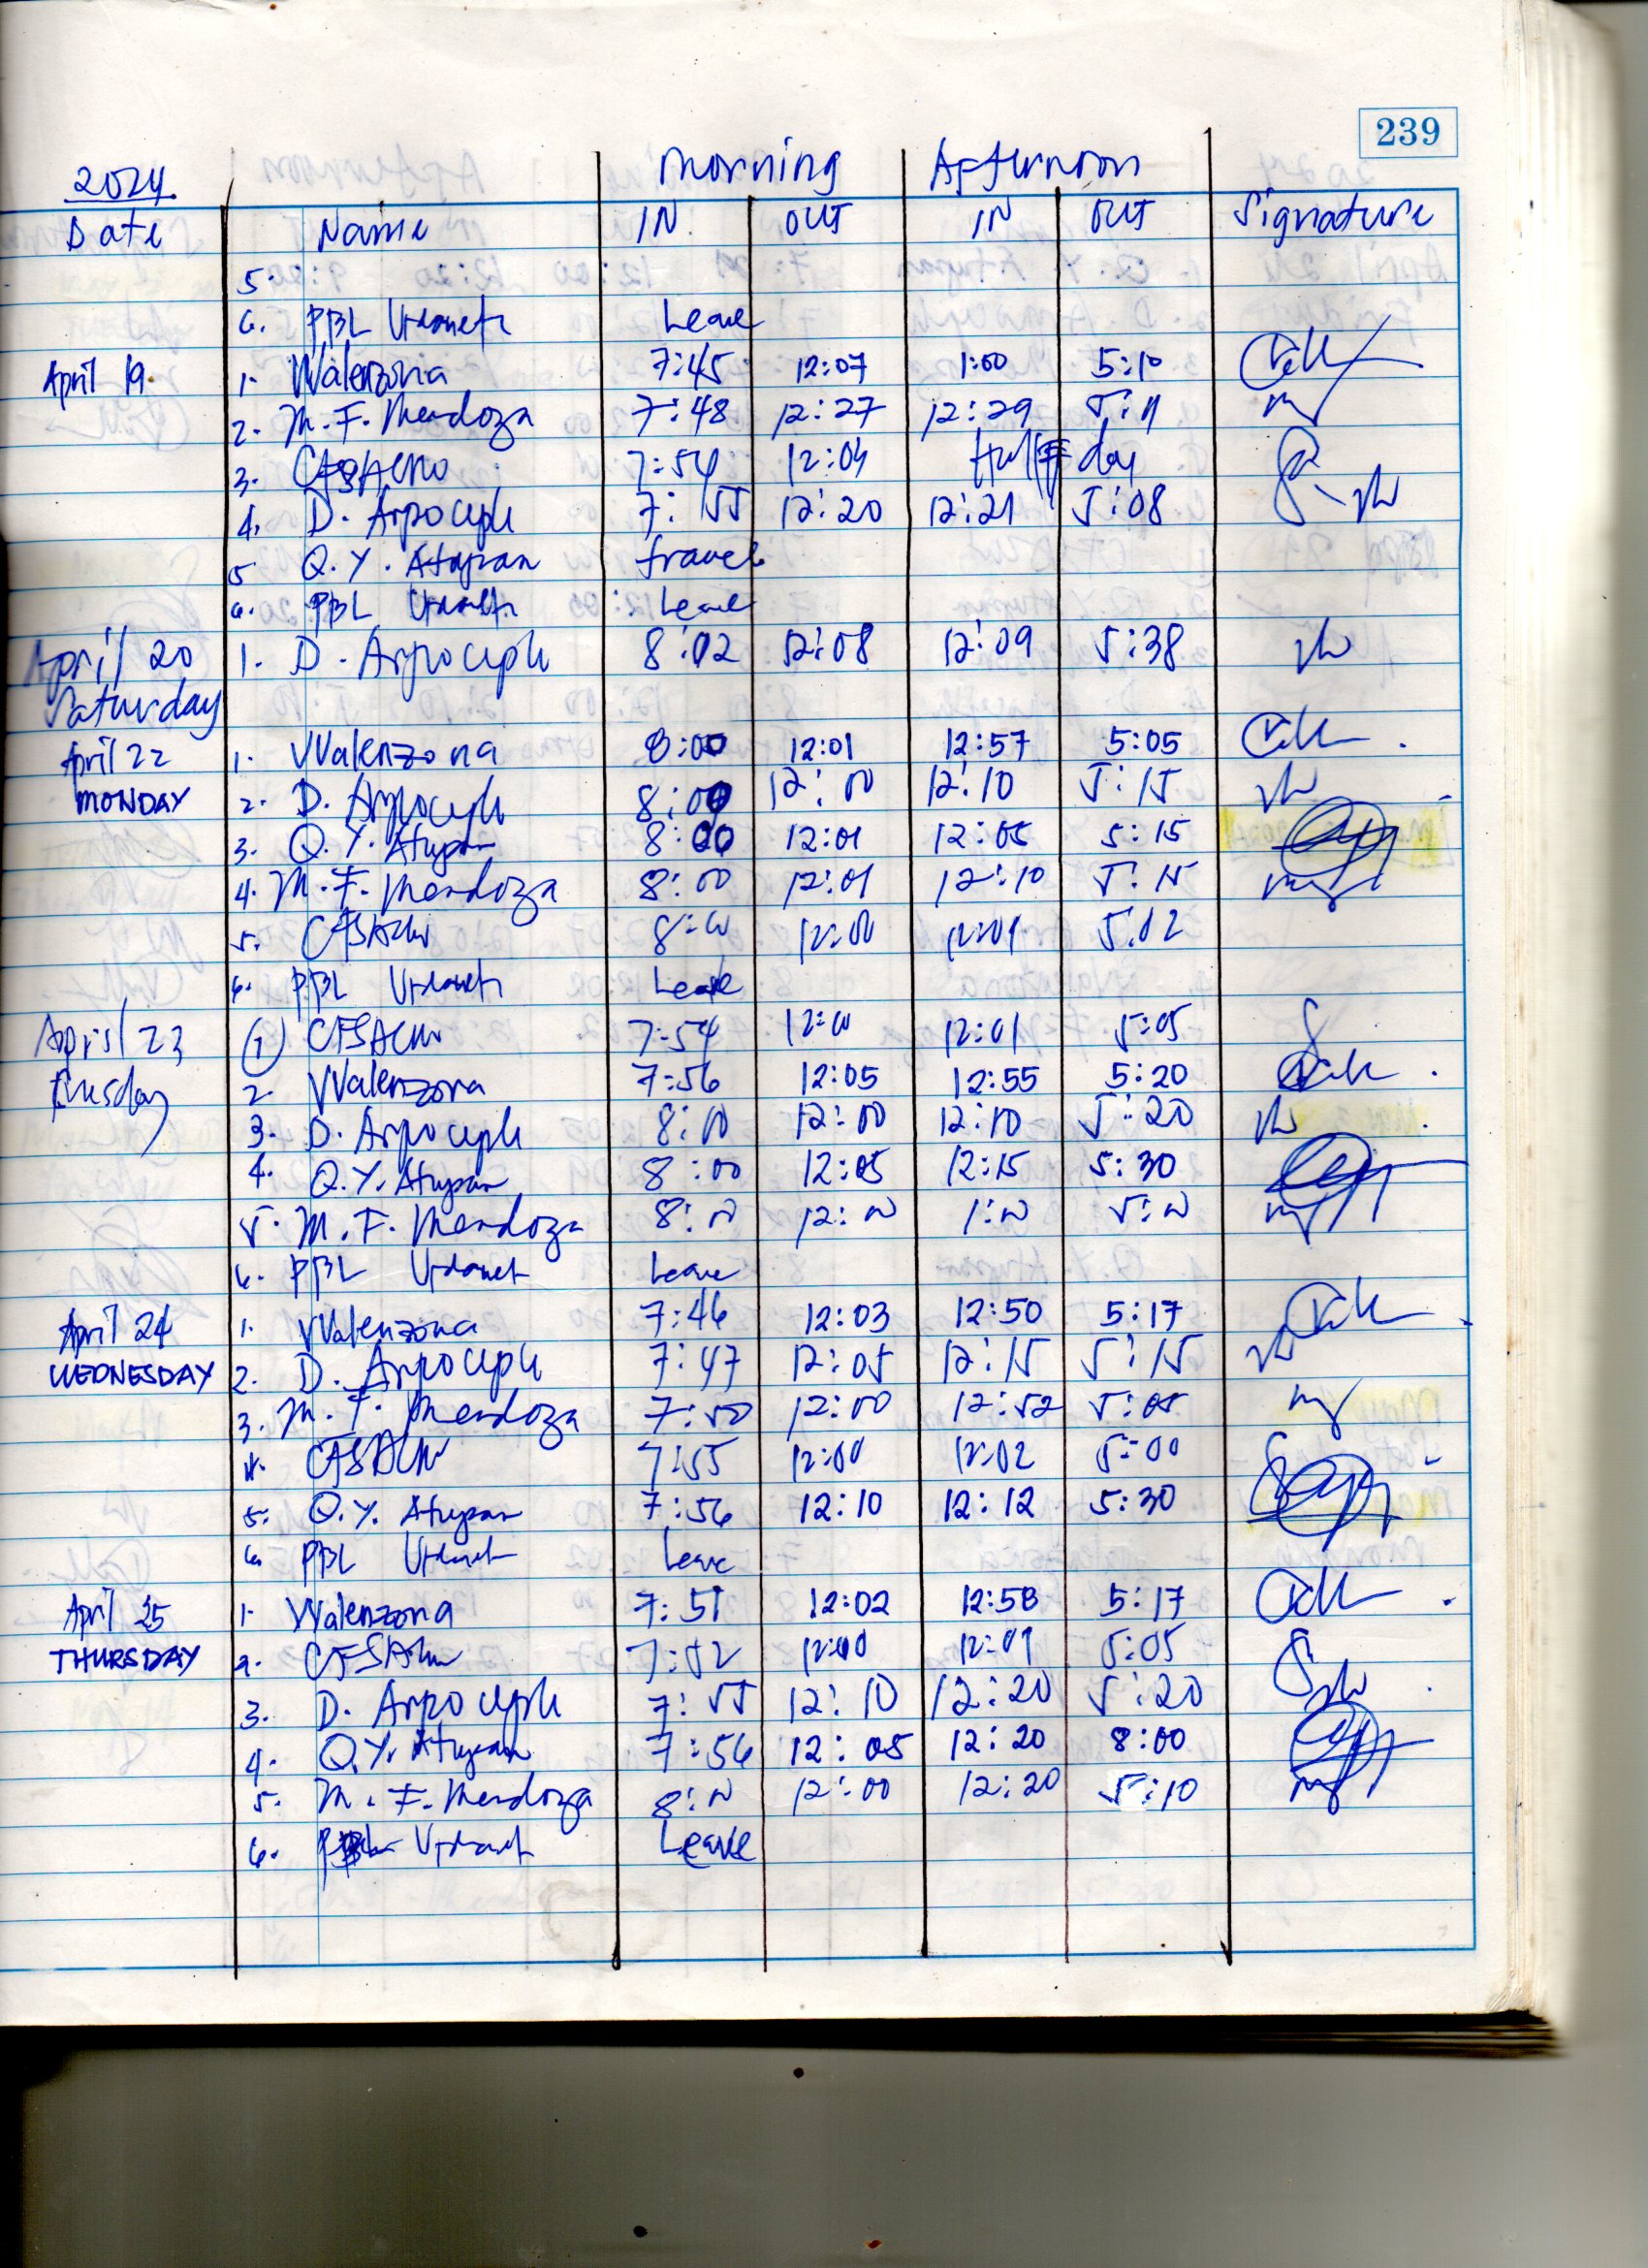 239
2024 Morning Afternoon
Date Name IN OUT IN OUT Signature
5.
6. PBL Leave
April 19. 1. VValenzona 7:45 12:07 1:00 5:10
2. M. F. Mendoza 7:48 12:27 12:29 5:11
3. 7:54 12:04 Half day
4. D. Arpoceph 7:55 12:20 12:21 5:08
5 Q. Y. Atupan travel
6. PBL Leave
April 20 1. D. Arpoceph 8:02 12:08 12:09 5:38
Saturday
April 22 1. VValenzona 8:00 12:01 12:57 5:05
MONDAY 2. D. Arpoceph 12:00 12:10 5:15
3. Q. Y. Atupan 8:00 12:01 12:05 5:15
4. M. F. Mendoza 8:00 12:01 12:10 5:15
5. 8:00 12:00 12:01 5:02
6. PBL Leave
April 23 (1) 7:54 12:00 12:01 5:05
Tuesday 2. VValenzona 7:56 12:05 12:55 5:20
3. D. Arpoceph 8:00 12:00 12:10 5:20
4. Q. Y. Atupan 8:00 12:05 12:15 5:30
5. M. F. Mendoza 8:00 12:00 1:00 5:00
6. PBL Leave
April 24 1. VValenzona 7:46 12:03 12:50 5:17
WEDNESDAY 2. D. Arpoceph 7:47 12:05 12:15 5:15
3. M. F. Mendoza 7:50 12:00 12:52 5:05
4. 7:55 12:00 12:02 5:00
5. Q. Y. Atupan 7:56 12:10 12:12 5:30
6. PBL Leave
April 25 1. VValenzona 7:51 12:02 12:58 5:17
THURSDAY 2. 7:52 12:00 12:01 5:05
3. D. Arpoceph 7:55 12:10 12:20 5:20
4. Q. Y. Atupan 7:56 12:05 12:20 8:00
5. M. F. Mendoza 8:00 12:00 12:20 5:10
6. Leave